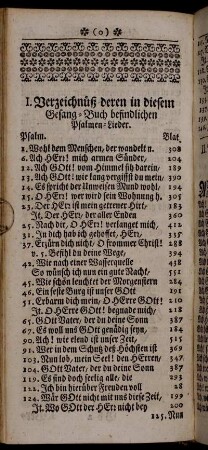 (0)
I. Verzeichnüß deren in diesem
Gesang-Buch befindlichen
Psalmen-Lieder.
Psalm. Blat
1. Wohl dem Menschen, der wandelt n. 308
6. Ach HErr! mich armen Sünder, 204
12. Ach GOtt! vom Himmel sih darein, 189
13. Ach GOtt! wie lang vergissest du mein, 190
14. Es spricht der Unweisen Mund wohl, 194
15. O HErr! wer wird sein Wohnung h. 305
23. Der HErr ist mein getreuer Hirt, 163
It. Der HErr, der aller Enden 260
25. Nach dir, O HErr! verlanget mich, 242
31. In dich hab ich gehoffet, HErr, 357
37. Erzürn dich nicht, O frommer Christ! 281
v. 5. Befihl du deine Wege, 394
42. Wie nach einer Wasserquelle 458
So wünsch ich nun ein gute Nacht, 551
45. Wie schön leuchtet der Morgenstern 264
46. Ein feste Burg ist unser GOtt 191
51. Erbarm dich mein, O HErre GOtt! 201
It. O HErre GOtt! begnade mich, 218
65. GOtt Vater, der du deine Sonn 387
67. Es woll uns GOtt genädig seyn, 184
90. Ach! wie elend ist unser Zeit, 515
91. Wer in dem Schutz deß Höchsten ist 369
103. Nun lob, mein Seel! den HErren, 347
104. GOtt Vater, der du deine Sonn 387
119. Es sind doch seelig alle, die 293
122. Ich bin hierüber Freuden voll 28
124. Wär GOtt nicht mit uns diese Zeit, 199
It. Wo GOtt der HErr nicht bey 200
125. Nun